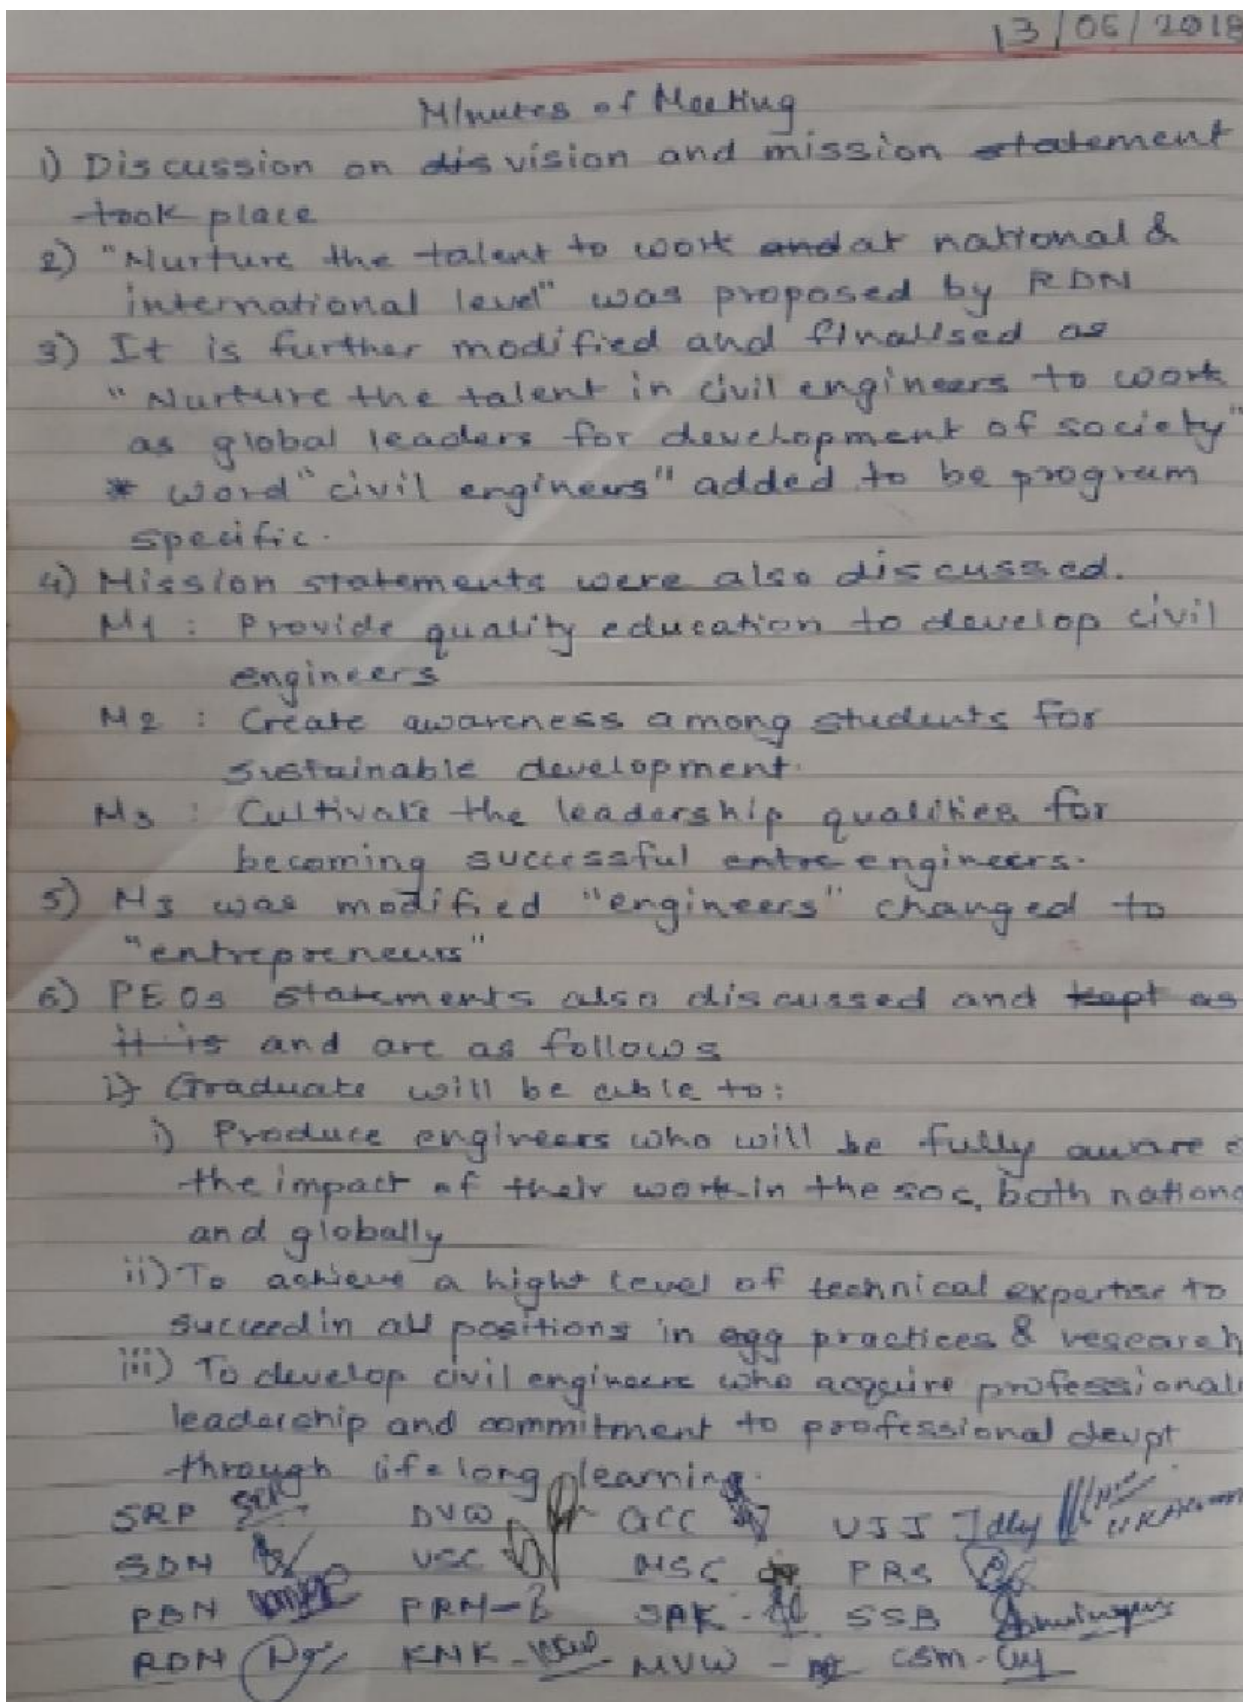 13/06/2018
Minutes of Meeting
1) Discussion on dis vision and mission statement
took place
2) "Nurture the talent to work and at national &
international level" was proposed by RDN
3) It is further modified and finalised as
"Nurture the talent in civil engineers to work
as global leaders for development of society"
* word "civil engineers" added to be program
specific.
4) Mission statements were also discussed.
M1 : Provide quality education to develop civil
engineers
M2 : Create awareness among students for
sustainable development.
M3 : Cultivate the leadership qualities for
becoming successful entre engineers.
5) M3 was modified "engineers" changed to
"entrepreneurs"
6) PEOs statements also discussed and kept as
it is and are as follows
i) Graduate will be able to:
i) Produce engineers who will be fully aware
the impact of their work in the soc, both nationa
and globally
ii) To achieve a hight level of technical expertise to
succeed in all positions in egg practices & research
iii) To develop civil engineers who acquire professional
leadership and commitment to professional devpt
through life long learning.
SRP DVW GCC UJJ
SDN VSC MSC PRS
PBN PRM- SAK - SSB
RDN KNK - MVW - CSM -